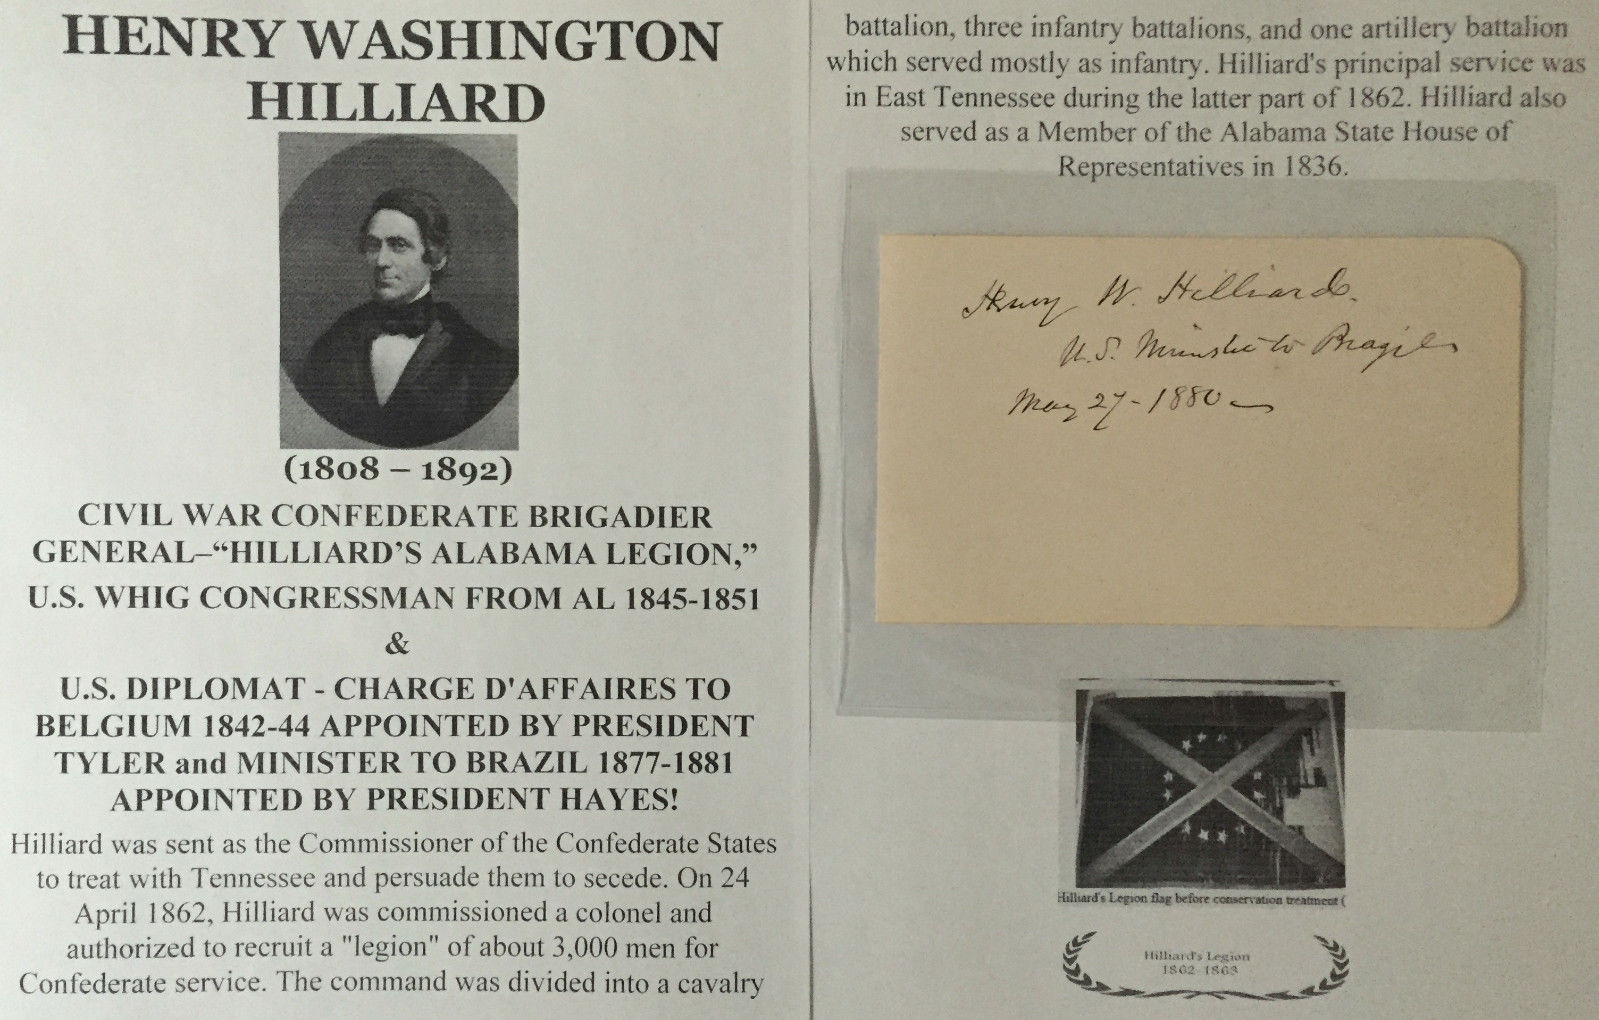 HENRY WASHINGTON
HILLIARD
(1808 – 1892)
CIVIL WAR CONFEDERATE BRIGADIER
GENERAL–“HILLIARD’S ALABAMA LEGION,”
U.S. WHIG CONGRESSMAN FROM AL 1845-1851
&
U.S. DIPLOMAT - CHARGE D'AFFAIRES TO
BELGIUM 1842-44 APPOINTED BY PRESIDENT
TYLER and MINISTER TO BRAZIL 1877-1881
APPOINTED BY PRESIDENT HAYES!
Hilliard was sent as the Commissioner of the Confederate States
to treat with Tennessee and persuade them to secede. On 24
April 1862, Hilliard was commissioned a colonel and
authorized to recruit a "legion" of about 3,000 men for
Confederate service. The command was divided into a cavalry
battalion, three infantry battalions, and one artillery battalion
which served mostly as infantry. Hilliard's principal service was
in East Tennessee during the latter part of 1862. Hilliard also
served as a Member of the Alabama State House of
Representatives in 1836.
Henry W. Hilliard.
U.S. Minister to Brazil
May 27-1880
Hilliard's Legion flag before conservation treatment (
Hilliard's Legion
1862-1863